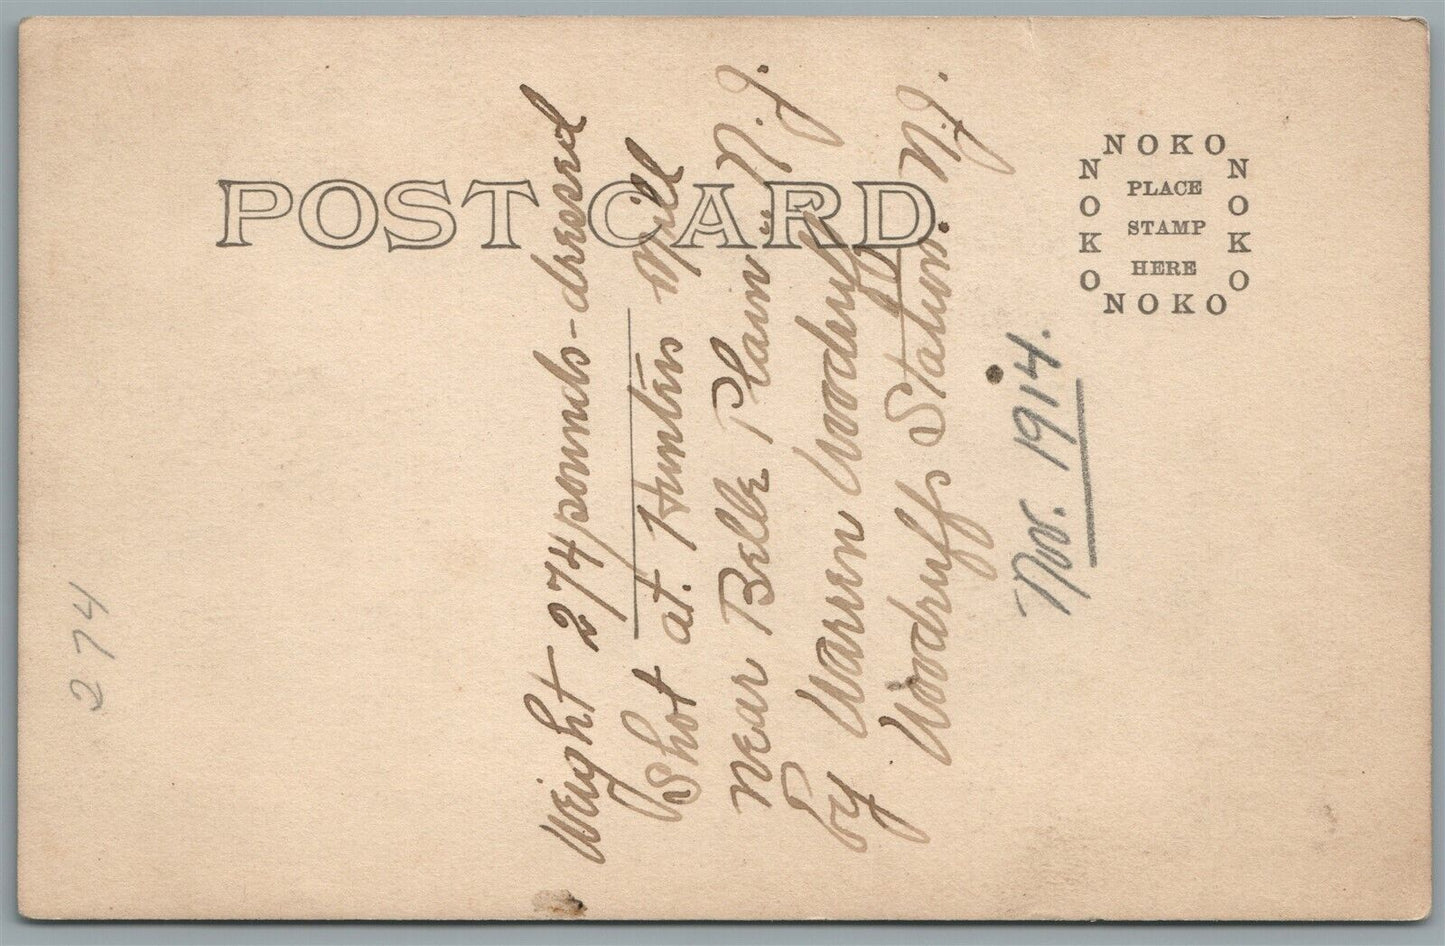 POST CARD
NOKO
NOKO
NOKO
NOKO
PLACE
STAMP
HERE
Weight 274 pounds-dressed
Shot at. Hunters Mill
near Belle Plain N.J.
by Warren Woodruff
Woodruffs Station. N.J.
Nov. 1914.
274